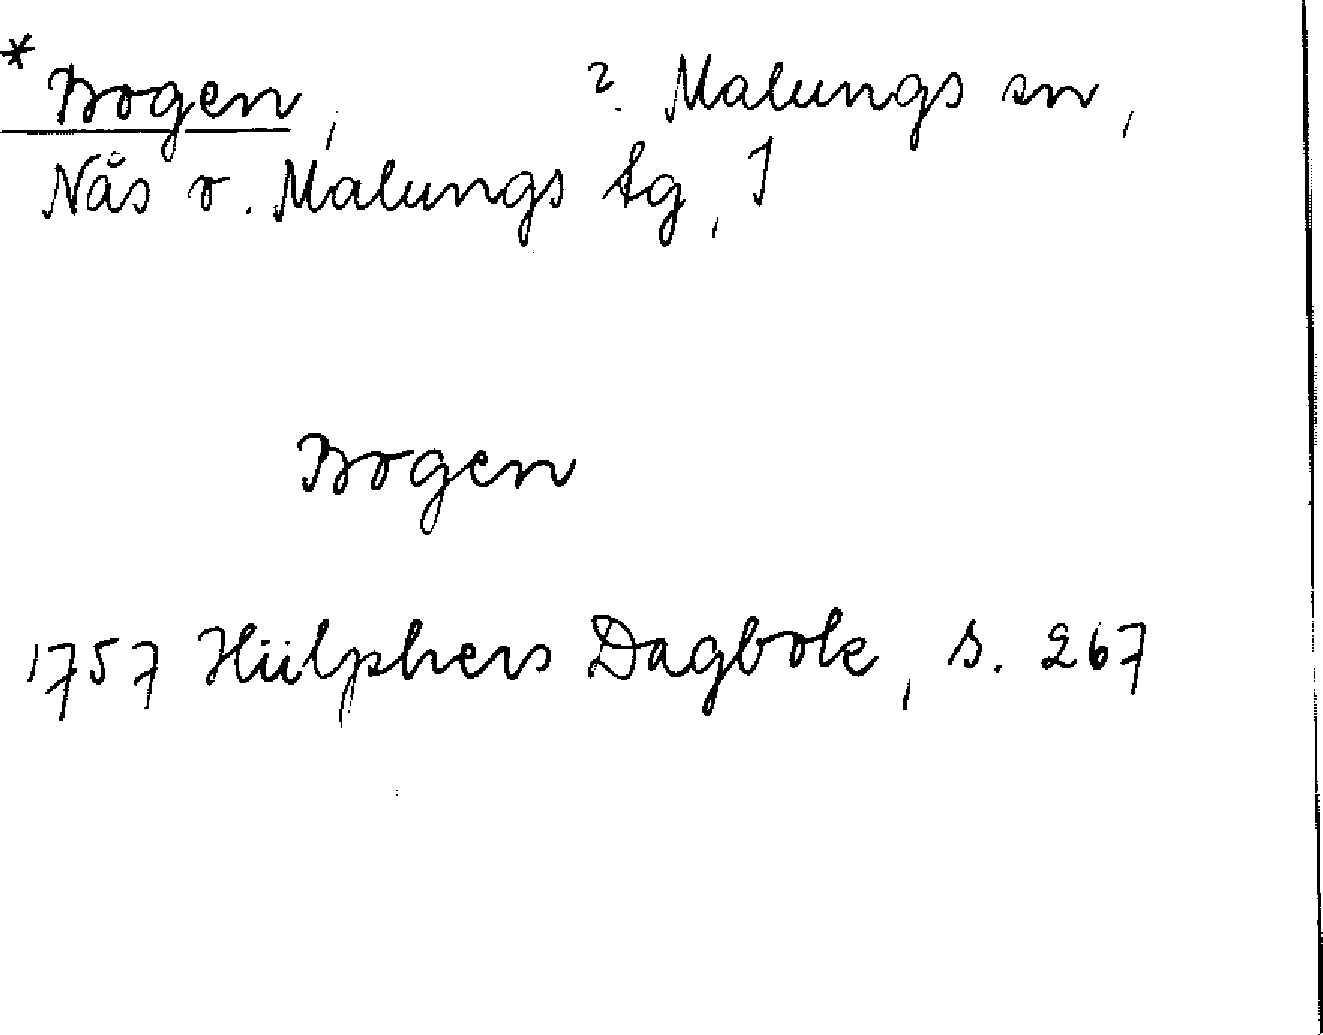 * Bogen, ? Malungs sn,
Nås o. Malungs tg,
Bogen
1757 Hülphers Dagbok, s. 267